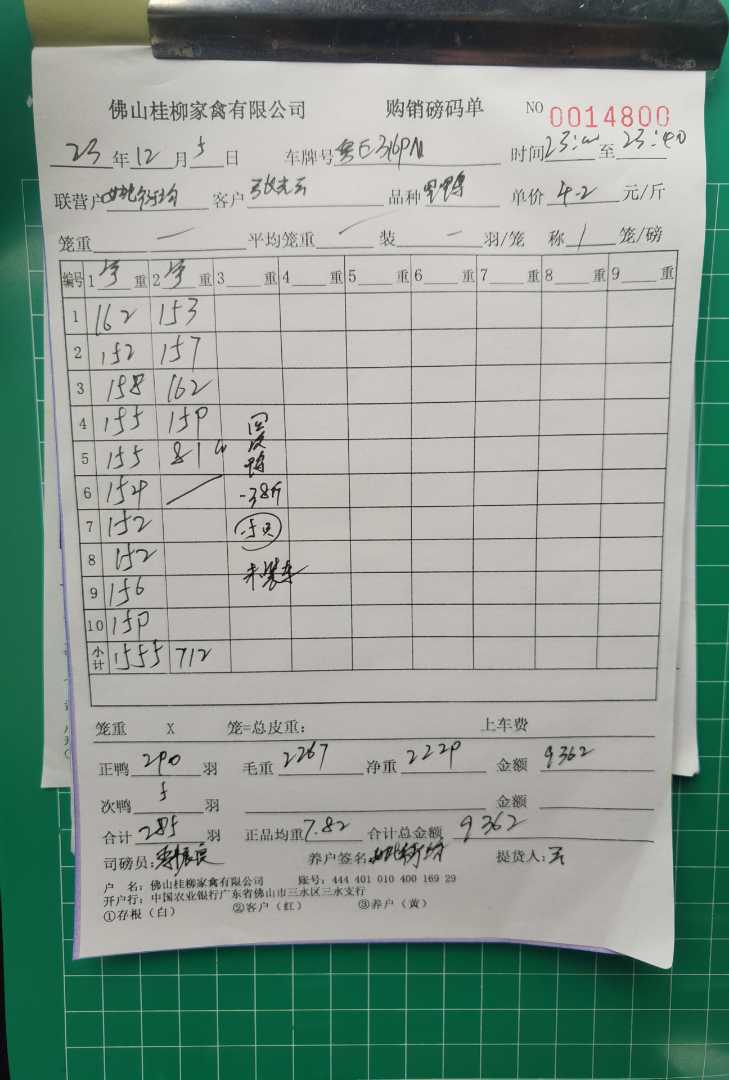 佛山桂柳家禽有限公司 购销磅码单 NO 0014800
23 年 12 月 5 日 车牌号 粤E 时间 23: 至 23:40
联营户 客户 品种 单价 4.2 元/斤
笼重 一 平均笼重 装 一 羽/笼 称 1 笼/磅
编号 1 字 重 2 字 重 3 重 4 重 5 重 6 重 7 重 8 重 9 重
1 162 153
2 152 157
3 158 162
4 155 159
5 155 81
6 154
7 152
8 152
9 156
10 159
小计 1555 712
回
次
鸭
-38斤
-5只
未装车
笼重 X 笼=总皮重: 上车费
正鸭 290 羽 毛重 2267 净重 2229 金额 9362
次鸭 5 羽 金额
合计 285 羽 正品均重 7.82 合计总金额 9362
司磅员: 养户签名 提货人:
户 名: 佛山桂柳家禽有限公司 账号: 444 401 010 400 169 29
开户行: 中国农业银行广东省佛山市三水区三水支行
①存根(白) ②客户(红) ③养户(黄)